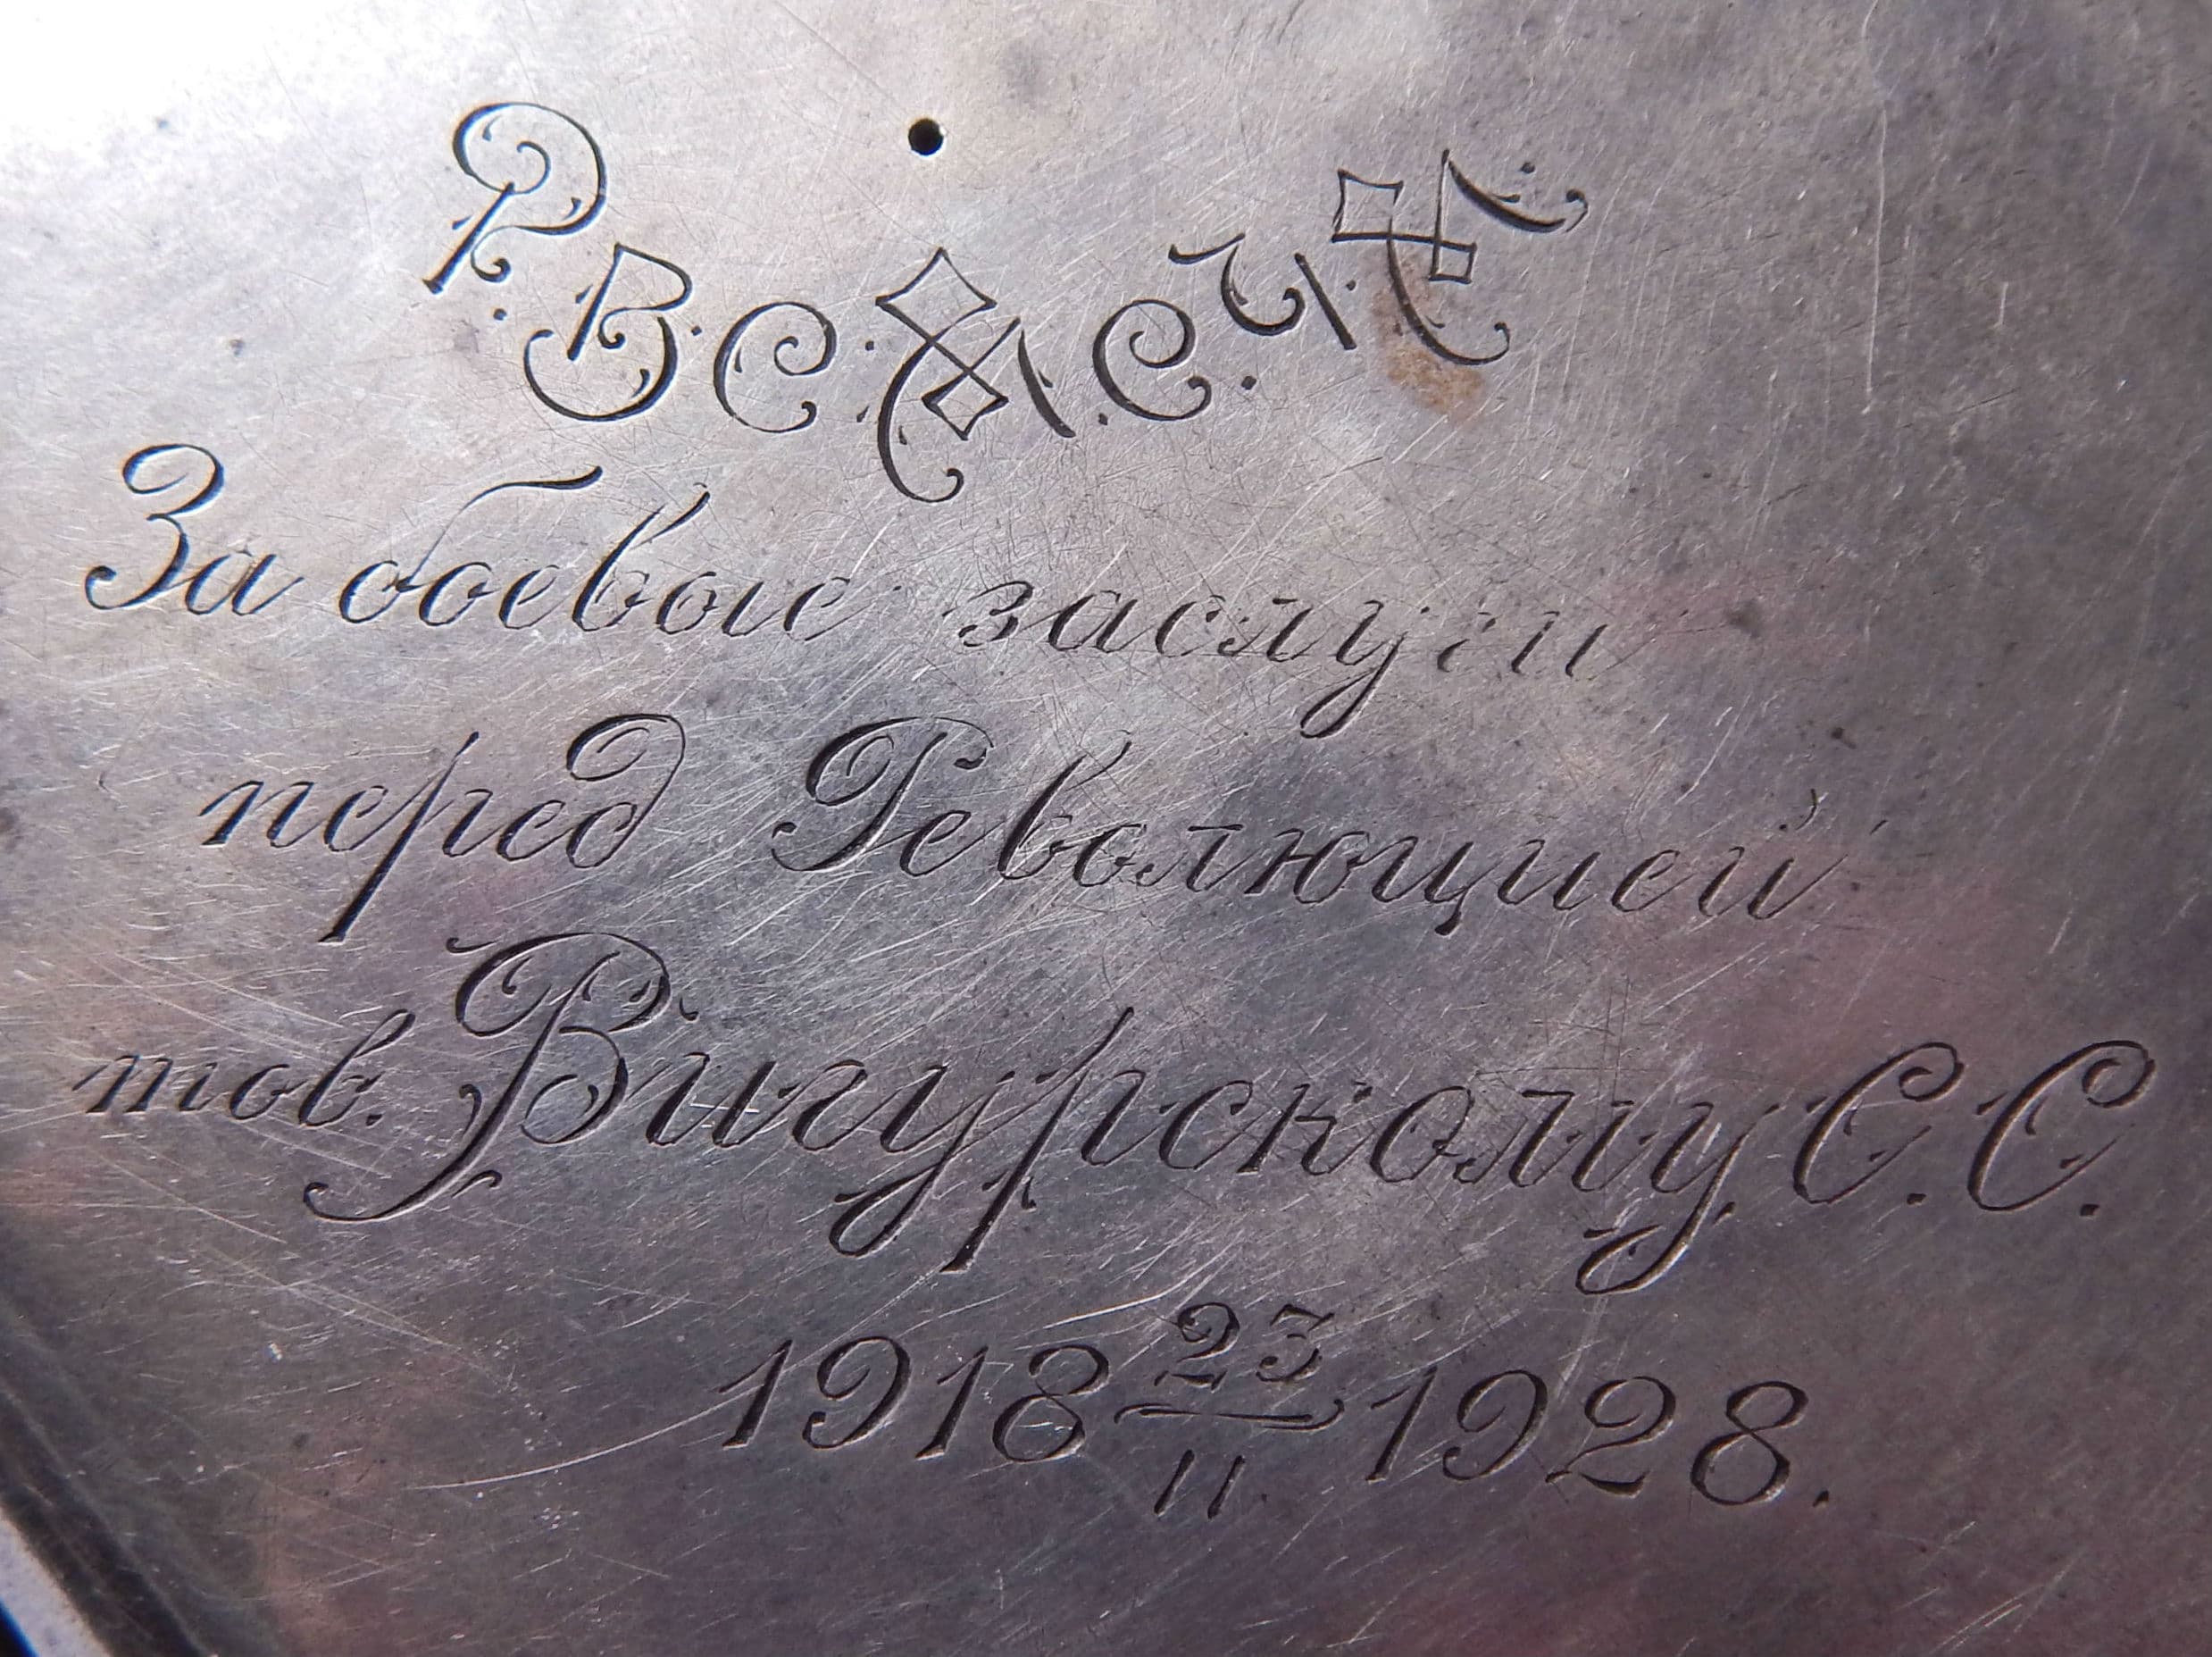 Р.В.С.М.С.Ч.М.
За боевые заслуги
перед Революцией
тов. Вигурскому С.С.
1918 23/II 1928.